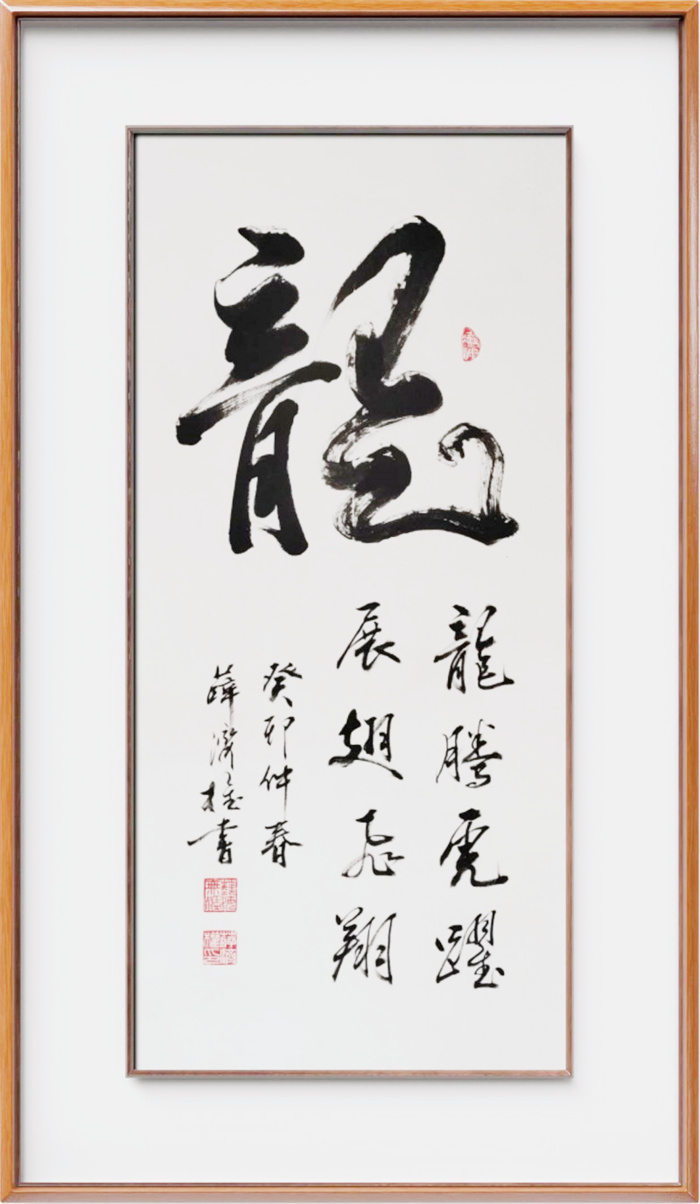 龍
龍騰虎躍
展翅飛翔
癸卯仲春
薛濟桂書